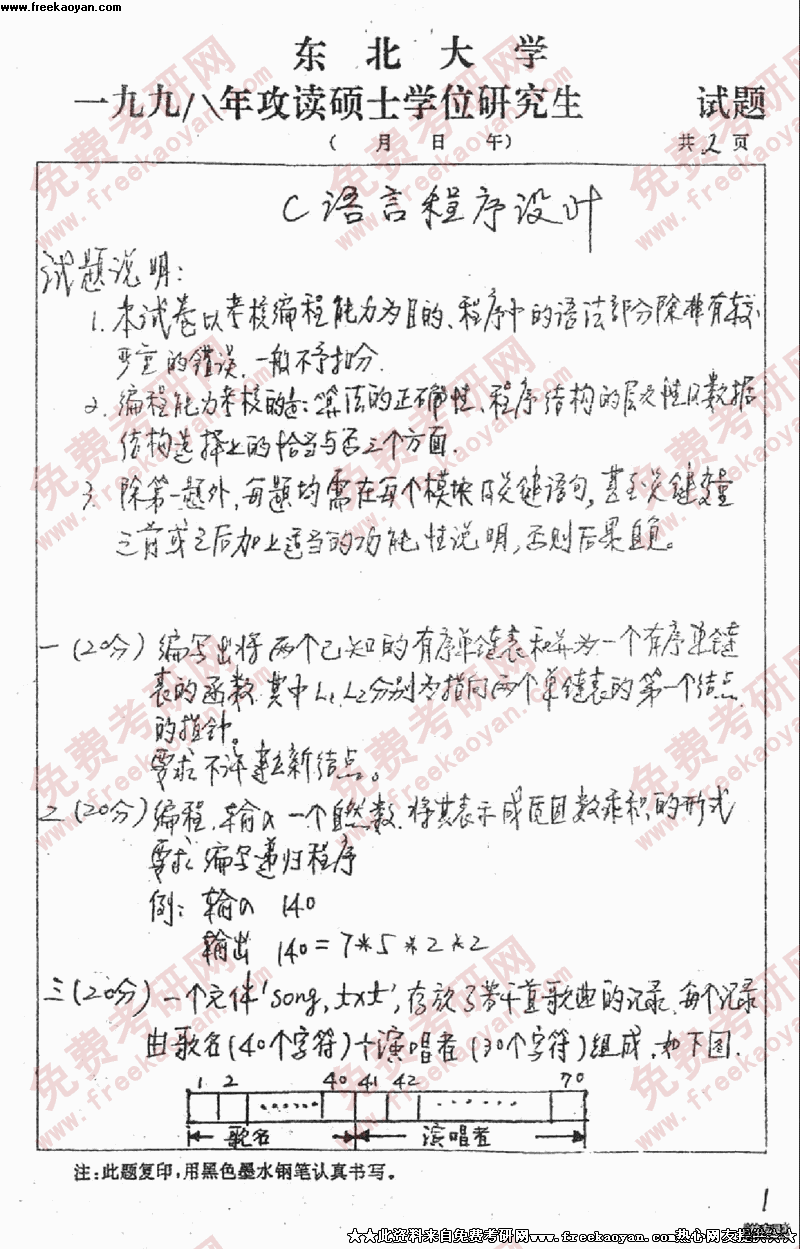 www.freekaoyan.com
东 北 大 学
一九九八年攻读硕士学位研究生 试题
( 月 日 午) 共2页
C语言程序设计
试题说明:
1. 本试卷以考核编程能力为目的、程序中的语法部分除非有较
严重的错误,一般不予扣分.
2. 编程能力考核的是:算法的正确性、程序结构的层次性及数据
结构选择上的恰当与否三个方面.
3. 除第一题外,每题均需在每个模块及关键语句,甚至关键变量
之前或之后加上适当的功能性说明,否则后果自负。
一(20分) 编写出将两个已知的有序单链表和并为一个有序单链
表的函数.其中L1、L2分别为指向两个单链表的第一个结点
的指针。
要求不许建立新结点。
二(20分) 编程,输入一个自然数.将其表示成质因数乘积的形式
要求编写递归程序
例: 输入 140
输出 140=7*5*2*2
三(20分) 一个文件'song.txt',存放了若干首歌曲的记录.每个记录
由歌名(40个字符)+演唱者(30个字符)组成.如下图.
1 2 40 41 42 70
歌名 演唱者
注:此题复印,用黑色墨水钢笔认真书写。
1
★★此资料来自免费考研网www.freekaoyan.com热心网友提供